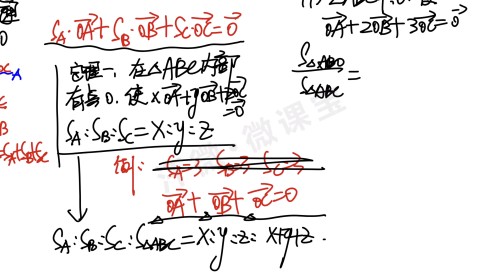 S_A·OA+S_B·OB+S_C·OC=0
定理一、在△ABC内部
有点O,使xOA+yOB+zOC=0
S_A:S_B:S_C=x:y:z
=A
B
=S_A+S_B+S_C
例:
S_A=3 S_B=3 S_C=3
OA+OB+OC=0
S_A:S_B:S_C:S△ABC=x:y:z:x+y+z.
OA+2OB+3OC=0
S△ABO/S△ABC=
微课堂